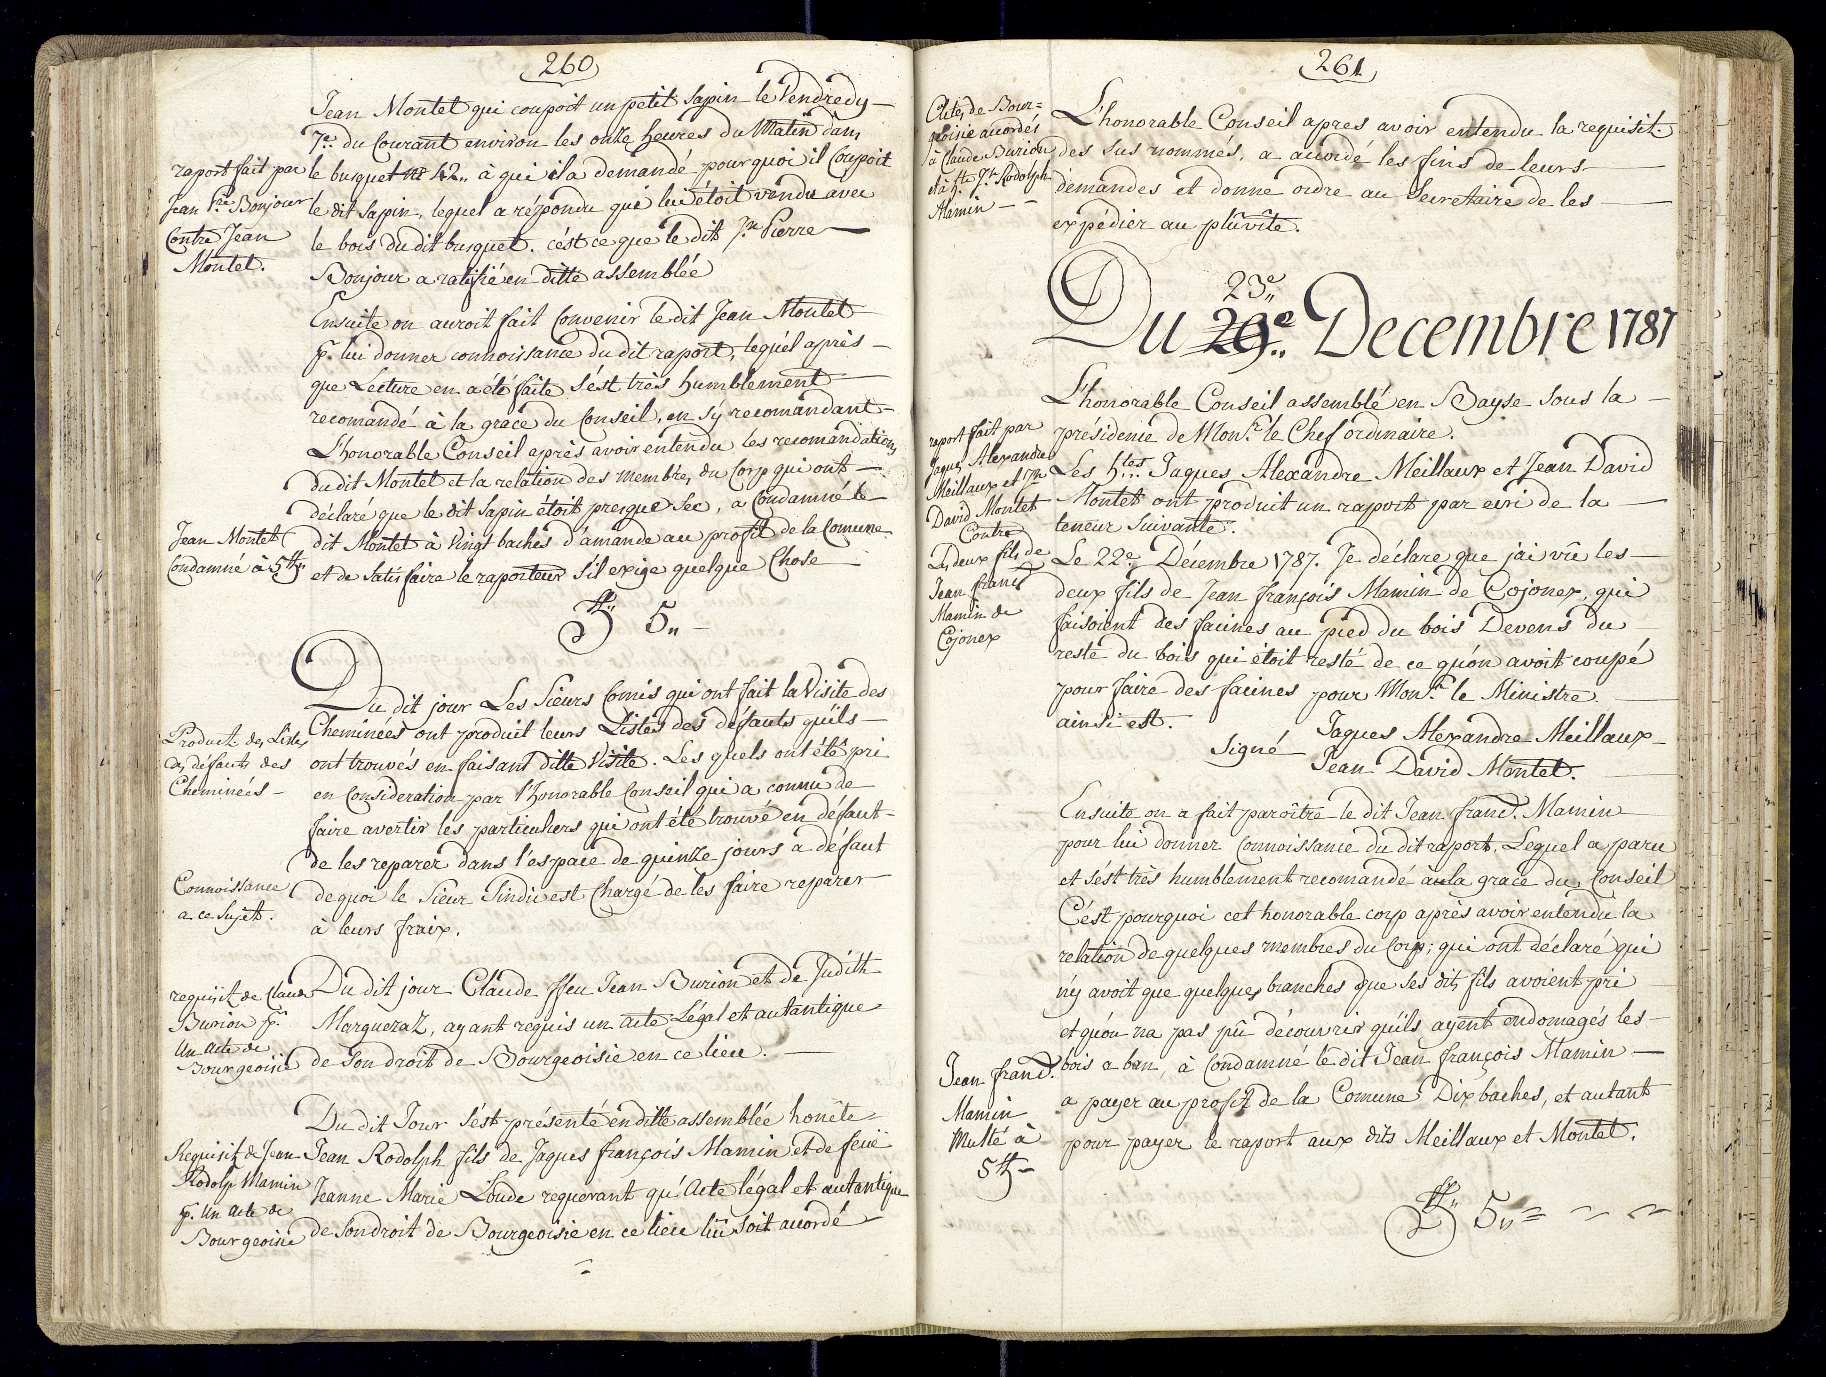 260
Jean Montet qui coupoit un petit Sapin le Vendredy
7e. du Courant environ les onze heures du Matin dans
raport fait par
Jean Pre Bonjour
Contre Jean
Montet.
le busquet no 42„ à qui il a demandé pourquoi il Coupoit
le dit Sapin, lequel a répondu qui lui étoit vendu avec
le bois du dit busquet. c'ést ce que le dit Jn Pierre
Bonjour a ratifié en ditte assemblée
Ensuite on auroit fait Convenir le dit Jean Montet
pr. lui donner connoissance du dit raport, lequél après
que Lecture en a été faite s'ést très humblement
recomandé à la grace du Conseil, en s'ÿ recomandant
L'honorable Conseil après avoir entendu les recomandations
du dit Montet et la relation des membres du Corp qui ont
déclaré que le dit Sapin étoit presque Sec, a Condamné le
Jean Montet
Condamné à 5 ₶„
dit Montet à Vingt baches d'amande au profit de la Comune
et de Satisfaire le raporteur s'il exige quelque Chose
₶„ 5„ –
Du dit jour Les Sieurs Comis qui ont fait la Visite des
Product des Listes
des défauts des
Cheminées –
Cheminées ont produit leurs Listes des défauts qu'ils
ont trouvés en faisant ditte Visite. Les quels ont été pri
en Consideration par l'honorable Conseil qui a connu de
faire avertir les particuliers qui ont été trouvé en défaut
de les reparer dans l'espace de quinze jours a défaut
Connoissance
a ce Sujet.
dequoi le Sieur Sindic est Chargé de les faire reparer
à leurs fraix.
requisit de Claude
Burion pr.
un acte de
Bourgeoisie
Du dit jour Claude ffeu Jean Burion et de Judith
Margueraz, ayant requis un acte Légal et autantique
de Son droit de Bourgeoisie en ce lieu.
Du dit Jour s'ést présenté en ditte assemblée honête
Requisit de Jean
Rodolp Mamin
pr. un acte de
Bourgeoisie
Jean Rodolph fils de Jaques françois Mamin et de feuë
Jeanne Marie Loude requerant qu'acte légal et autantique
de Son droit de Bourgeoisie en ce lieu lui Soit acordé
261
Actes de Bour=
geoisie acordés
à Claude Burion
et à hte Jn Rodolph
Mamin
L'honorable Conseil apres avoir entendu la requisit.
des sus nommés, a acordé les fins de leurs
demandes et donne ordre au Secretaire de les
expédier au plûvîte.
23e„
Du 29e„ Decembre 1787
L'honorable Conseil assemblé en Bayse sous la
présidence de Monsr. le Chef ordinaire.
raport fait par
Jaques Alexandre
Meillaux et Jn
David Montet
Contre
Les deux fils de
Jean francs
Mamin de
Cojonex
Les htes Jaques Alexandre Meillaux et Jean David
Montet ont produit un raport par ecri de la
teneur Suivante.
Le 22e. Décembre 1787. Je déclare que j'ai vû les
deux fils de Jean françois Mamin de Cojonex, qui
faisoient des facines au pied du bois Devens du
reste du bois qui étoit resté de ce qu'on avoit coupé
pour faire des facines pour Monsr. le Ministre
ainsi est.
Signé
Jaques Alexandre Meillaux
Jean David Montet.
Ensuite on a fait paroître le dit Jean francs. Mamin
pour lui donner Connoissance du dit raport. Lequel a paru
et s'ést très humblement recomandé a la grace du Conseil
C'ést pourquoi cet honorable corp après avoir entendu la
relation de quelques membres du Corp; qui ont déclaré qui
n'y avoit que quelques branches que ses dits fils avoient pri
et qu'on n'a pas pû découvrir qu'ils ayent endomagés les
Jean francs.
Mamin
Multé à
5 ₶ –
bois a ban, à Condamné le dit Jean françois Mamin
a payer au profit de la Comune Dix baches, et autant
pour payer le raport aux dits Meillaux et Montet.
₶„ 5„